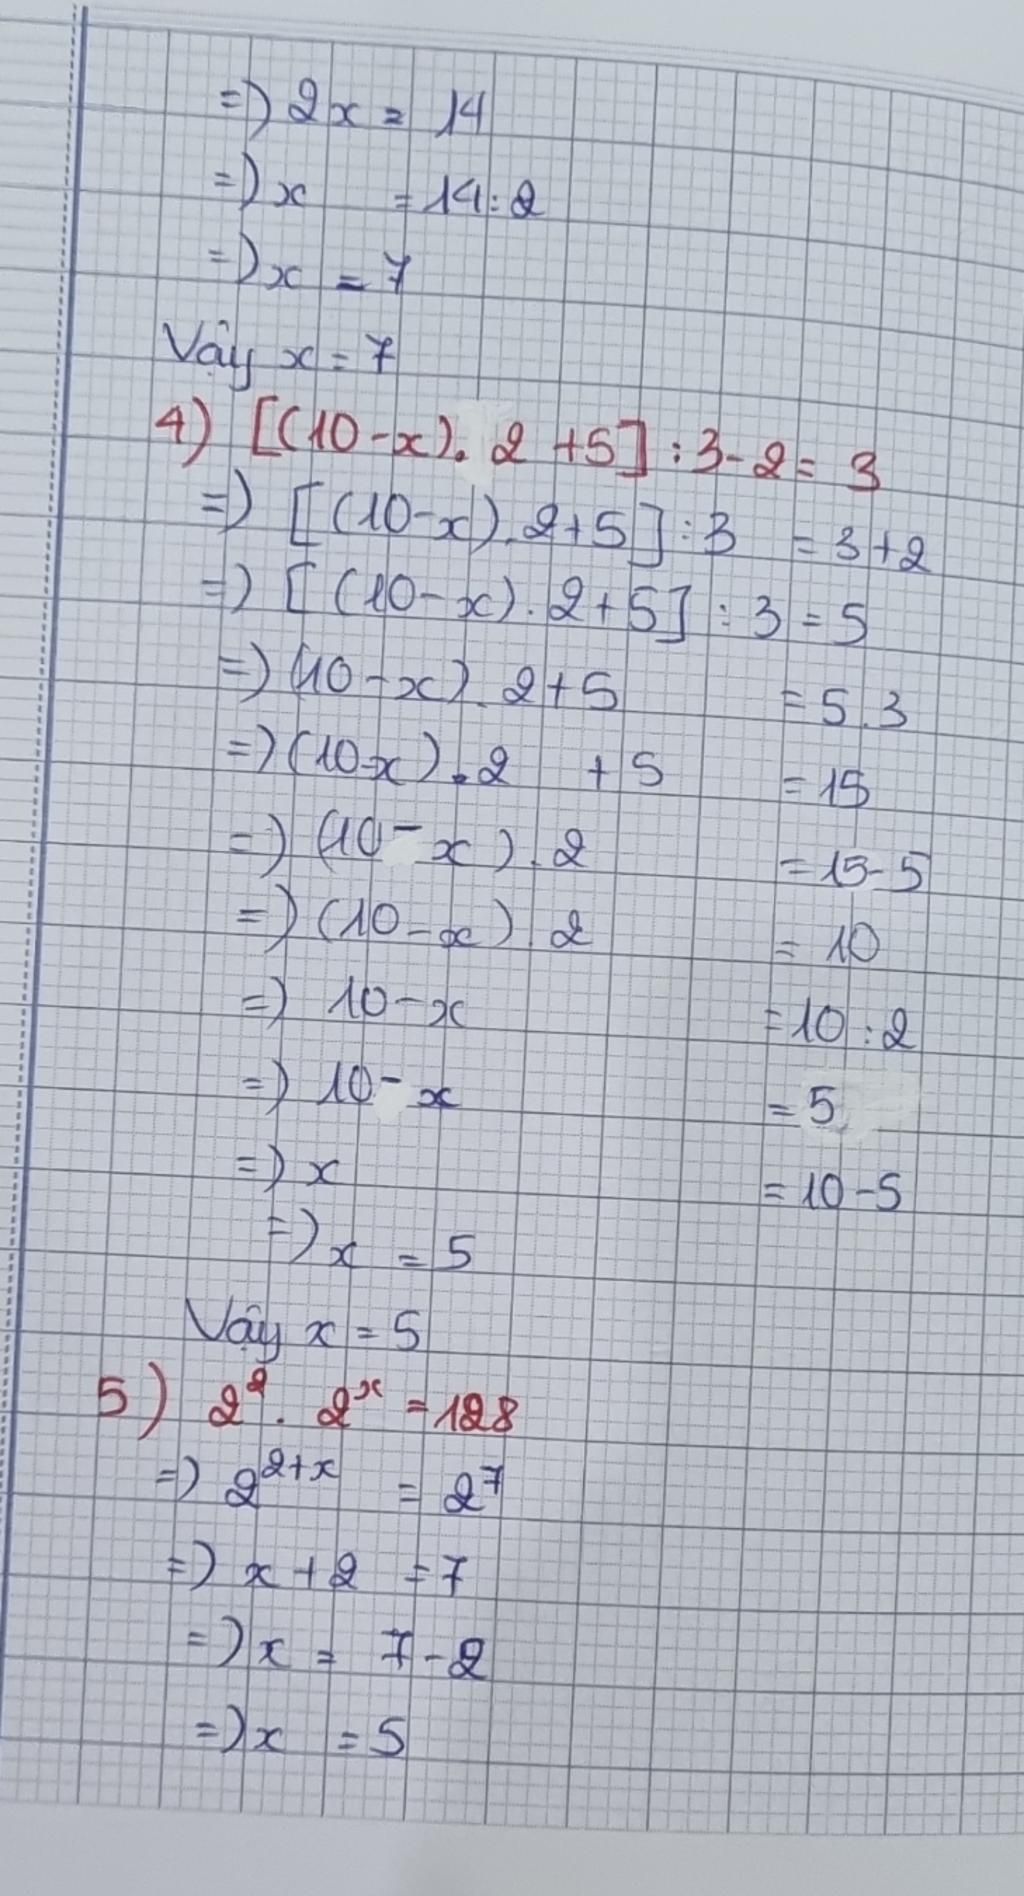 => 2x = 14
=> x = 14:2
=> x = 7
Vậy x = 7
4) [(10-x). 2 +5] : 3-2= 3
=> [(10-x).2+5] : 3 = 3+2
=> [(10-x).2+5] : 3 = 5
=> (10-x).2+5 = 5.3
=> (10-x).2 +5 = 15
=> (10-x).2 = 15-5
=> (10-x) 2 = 10
=> 10-x = 10:2
=> 10-x = 5
=> x = 10-5
=> x = 5
Vậy x = 5
5) 2². 2ˣ = 128
=> 2²⁺ˣ = 2⁷
=> x+2 = 7
=> x = 7-2
=> x = 5